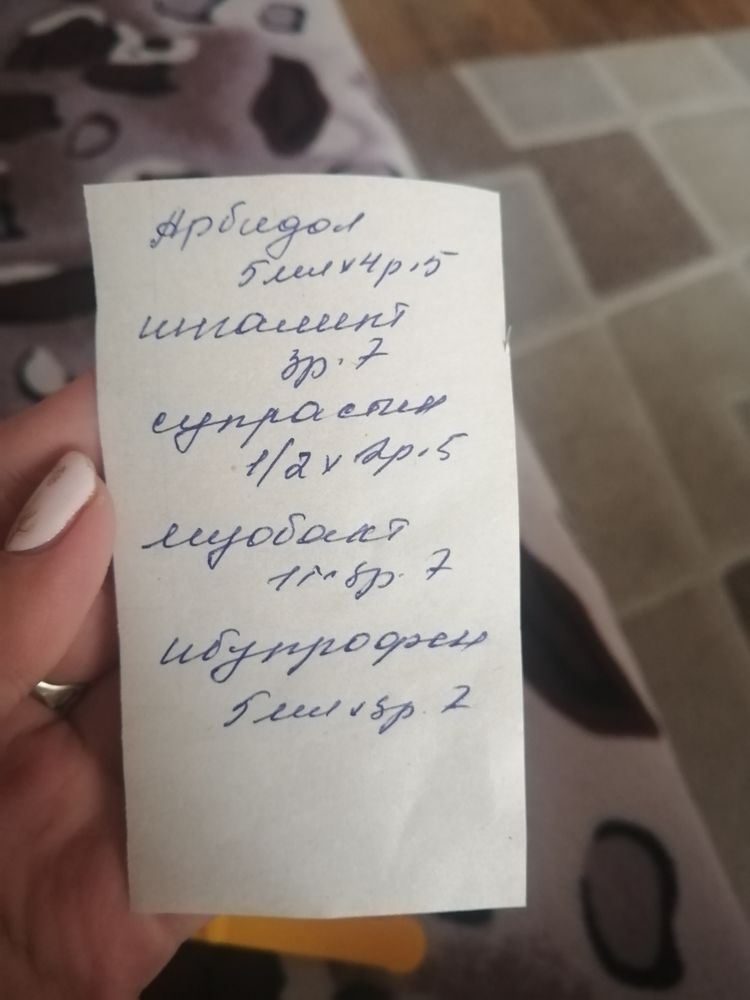 Арбидол
5мл x 4р. 5
ингалипт
3р. 7
супрастин
1/2 x 2р. 5
лизобакт
1т. 3р. 7
ибупрофен
5мл x 3р. 7